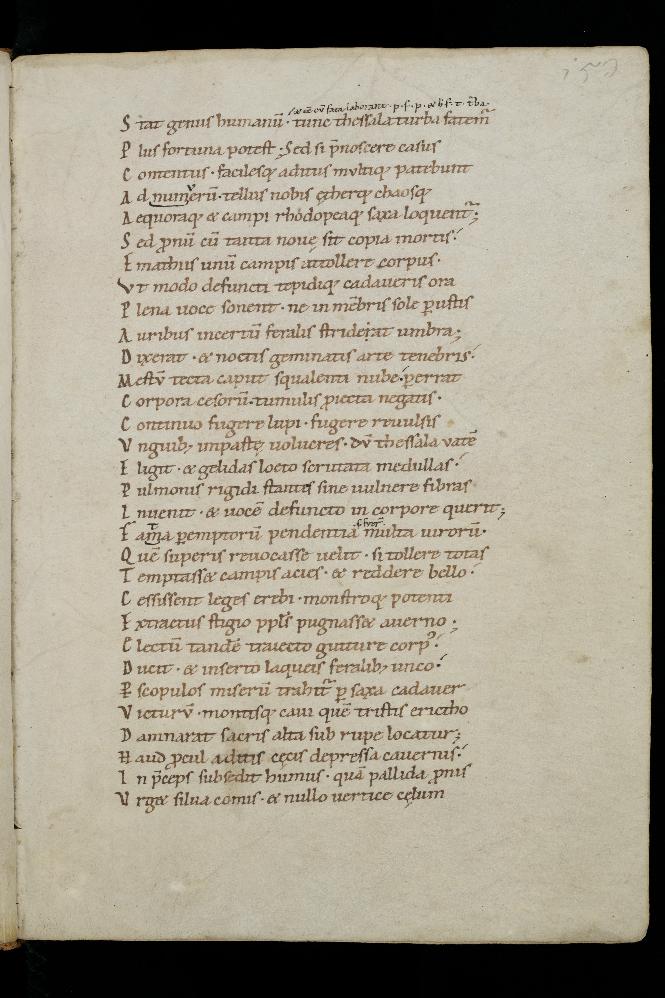 157
/ & cū oū fata laborant · p · s · p · & hͥ s · t · t̄ba ·
S tat genus humanū · tunc thessala turba fatem̄
P lus fortuna potest ; Sed si p̄noscere casus
C ontentus · facilesq; aditus multiq; patebunt
A d numerū · tellus nobis ętherq; chaosq;
A equoraq; & campi rhodopeaq; saxa loquent᷑ ;
S ed ꝓnū cū tanta nouę sit copia mortis ·
E mathiis unū campis attollere corpus ·
V t modo defuncti tepidiq; cadaueris ora
P lena uoce sonent · ne in mēbris sole ꝑustis
A uribus incertū feralis striderat umbra ;
D ixerat · & noctis geminatis arte tenebris ·
M estū tecta caput squalenti nube · ꝑerrat
C orpora cesorū · tumulis ꝓiecta negatis ·
C ontinuo fugere lupi · fugere reuulsis
V nguib; impastę uolucres · dū thessala uatē
E ligit · & gelidas loeto scrutata medullas ·
P ulmonis rigidi stantes sine uulnere fibras
I nuenit · & uocē defuncto in corpore querit ;
F ata ꝑemptorū pendentia multa uirorū ·
Q uē superis reuocasse uelit · si tollere totas
T emptass& campis acies · & reddere bello ·
C essissent leges erebi · monstroq; potenti
E xtractus stigio ppl̄s pugnass& auerno ;
E lectū tandē traiecto gutture corpꝰ ·
D ucit · & inserto laqueis feralib; unco ·
P̱ scopulos miserū trahit᷑ ꝑ saxa cadauer
V icturū · montisq; caui quē tristis erictho
D amnarat sacris alta sub rupe locatur ;
H aud ꝓcul aditis cęcis depressa cauernis ·
I n p̄ceps subsedit humus · quā pallida ꝓnis
V rg& silua comis · & nullo uertice cęlum